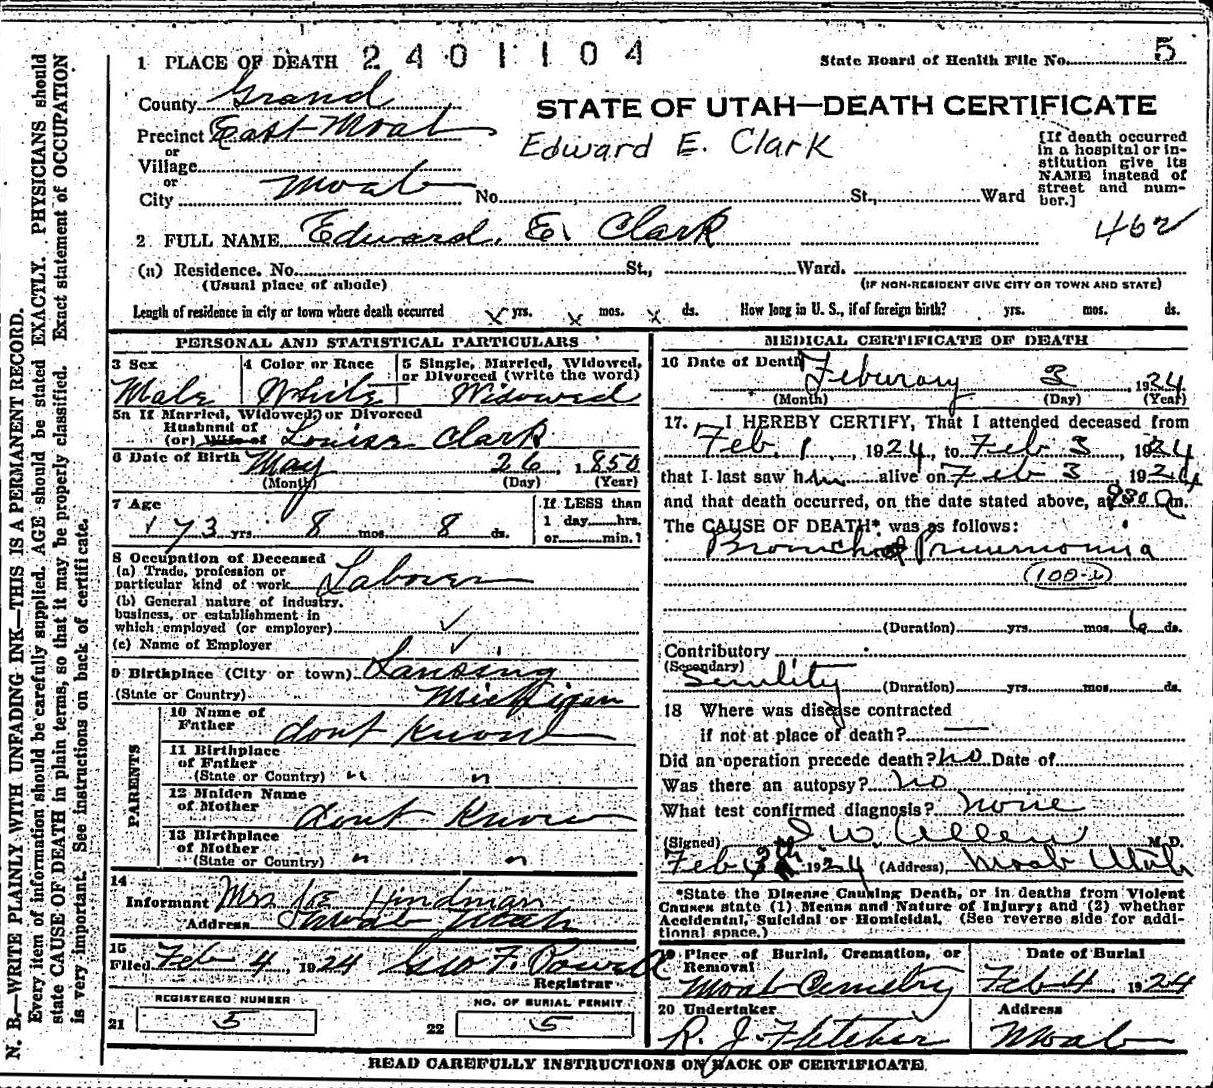 1 PLACE OF DEATH 2401104
State Board of Health File No. 5
County Grand
STATE OF UTAH—DEATH CERTIFICATE
Precinct East Moab
Edward E. Clark
[If death occurred in a hospital or institution give its NAME instead of street and number.]
or
Village
or
City Moab No. St., Ward
2 FULL NAME Edward. E. Clark
462
(a) Residence. No. St., Ward.
(Usual place of abode) (IF NON-RESIDENT GIVE CITY OR TOWN AND STATE)
Length of residence in city or town where death occurred X yrs. X mos. X ds. How long in U. S., if of foreign birth? yrs. mos. ds.
PERSONAL AND STATISTICAL PARTICULARS
3 Sex Male
4 Color or Race White
5 Single, Married, Widowed, or Divorced (write the word) Widowed
5a If Married, Widowed, or Divorced
Husband of
(or) Wife of Louisa Clark
6 Date of Birth May 26, 1850
(Month) (Day) (Year)
7 Age 73 yrs. 8 mos. 8 ds.
If LESS than
1 day hrs.
or min.?
8 Occupation of Deceased
(a) Trade, profession or
particular kind of work Laborer
(b) General nature of industry,
business, or establishment in
which employed (or employer) ✓
(c) Name of Employer
9 Birthplace (City or town) Lansing
(State or Country) Michigan
PARENTS
10 Name of Father dont Know
11 Birthplace of Father
(State or Country) " "
12 Maiden Name of Mother dont Know
13 Birthplace of Mother
(State or Country) " "
14
Informant Mrs Hindman
Address Moab Utah
15
Filed Feb 4, 1924 Geo F. Powell
Registrar
REGISTERED NUMBER
21 5
NO. OF BURIAL PERMIT
22 5
MEDICAL CERTIFICATE OF DEATH
16 Date of Death Feburary 3, 1924
(Month) (Day) (Year)
17. I HEREBY CERTIFY, That I attended deceased from
Feb. 1, 1924, to Feb 3, 1924
that I last saw him alive on Feb 3 1924
and that death occurred, on the date stated above, at 930 a m.
The CAUSE OF DEATH* was as follows:
Bronchial Pneumonia
(100-2)
(Duration) yrs. mos. 6 ds.
Contributory
(Secondary)
Senility (Duration) yrs. mos. ds.
18 Where was disease contracted
if not at place of death? —
Did an operation precede death? no Date of
Was there an autopsy? no
What test confirmed diagnosis? none
(Signed) I W. Allen M.D.
Feb 3th 1924 (Address) Moab Utah
*State the Disease Causing Death, or in deaths from Violent
Causes state (1) Means and Nature of Injury; and (2) whether
Accidental, Suicidal or Homicidal. (See reverse side for addi-
tional space.)
19 Place of Burial, Cremation, or Removal
Moab Cemetry
Date of Burial
Feb 4 1924
20 Undertaker
R. J. Fletcher
Address
Moab
READ CAREFULLY INSTRUCTIONS ON BACK OF CERTIFICATE.
N. B.—WRITE PLAINLY WITH UNFADING INK—THIS IS A PERMANENT RECORD.
Every item of information should be carefully supplied. AGE should be stated EXACTLY. PHYSICIANS should
state CAUSE OF DEATH in plain terms, so that it may be properly classified. Exact statement of OCCUPATION
is very important. See instructions on back of certificate.